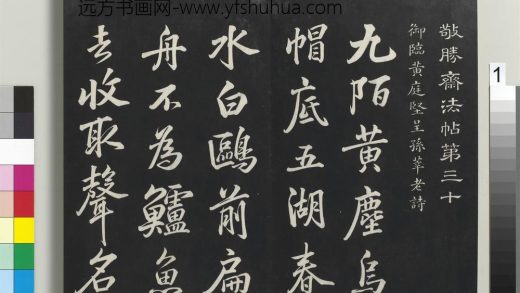 远方书画网-www.yfshuhua.com
敬勝齋法帖第三十
御臨黄庭堅呈孫莘老詩
九陌黄塵烏
帽底五湖春
水白鷗前扁
舟不為鱸魚
去收取聲名
1